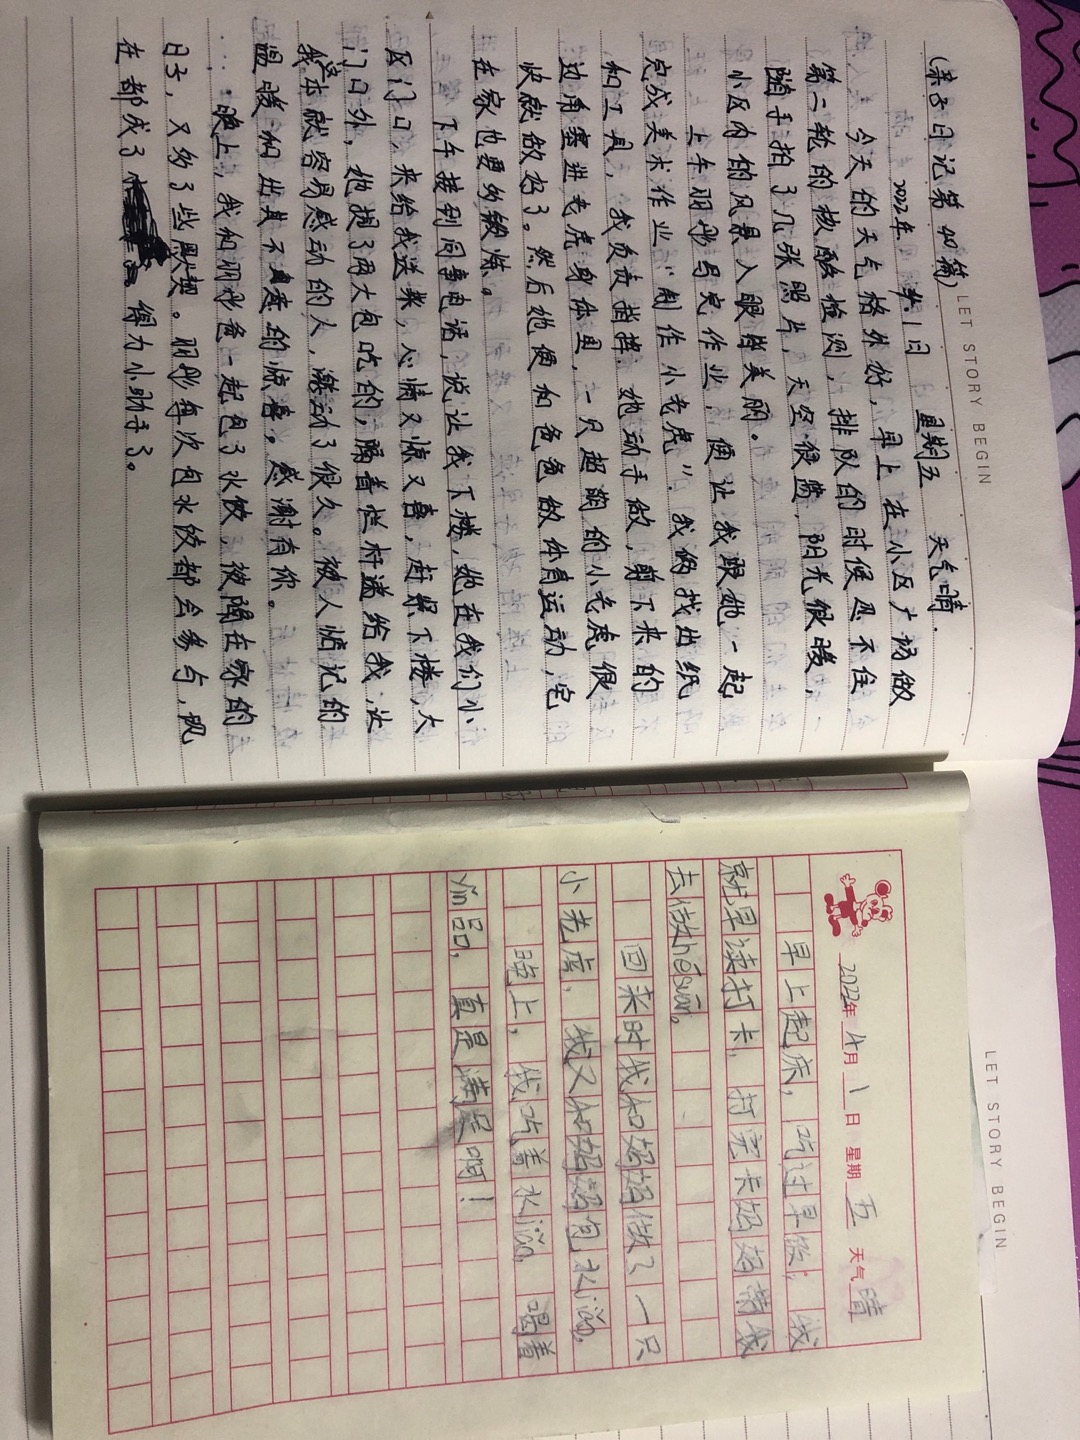 LET STORY BEGIN
(亲子日记第40篇)
2022年4.1日 星期五 天气晴.
今天的天气格外好,早上在小区广场做
第二轮的核酸检测,排队的时候忍不住
随手拍了几张照片,天空很蓝,阳光很暖,
小区内的风景入眼皆美丽。
上午丽彤写完作业,便让我跟她一起
完成美术作业“制作小老虎”。我俩找出纸
和工具,我负责指挥,她动手做,剪下来的
边角塞进老虎身体里,一只超萌的小老虎很
快就做好了。然后她便和爸爸做体育运动,宅
在家也要多锻炼。
下午接到同事电话,说让我下楼,她在我们小
区门口,来给我送菜,心情又惊又喜,赶紧下楼,大
门口外,她提了两大包吃的,隔着栏杆递给我,让
我本就容易感动的人,激动了很久。被人惦记的
温暖和出其不意的惊喜,感谢有你。
晚上,我和丽彤爸一起包了水饺,被隔在家的
日子,又多了些默契。丽彤每次包水饺都会参与,现
在都成了得力小助手了。
LET STORY BEGIN
2022年4月1日 星期五 天气晴
早上起床,吃过早饭,我
就早读打卡,打完卡妈妈带我
去做hésuān。
回来时我和妈妈做了一只
小老虎,我又和妈妈包水jiǎo,
晚上,我吃着水jiǎo,喝着
yǐn品,真是满足啊!